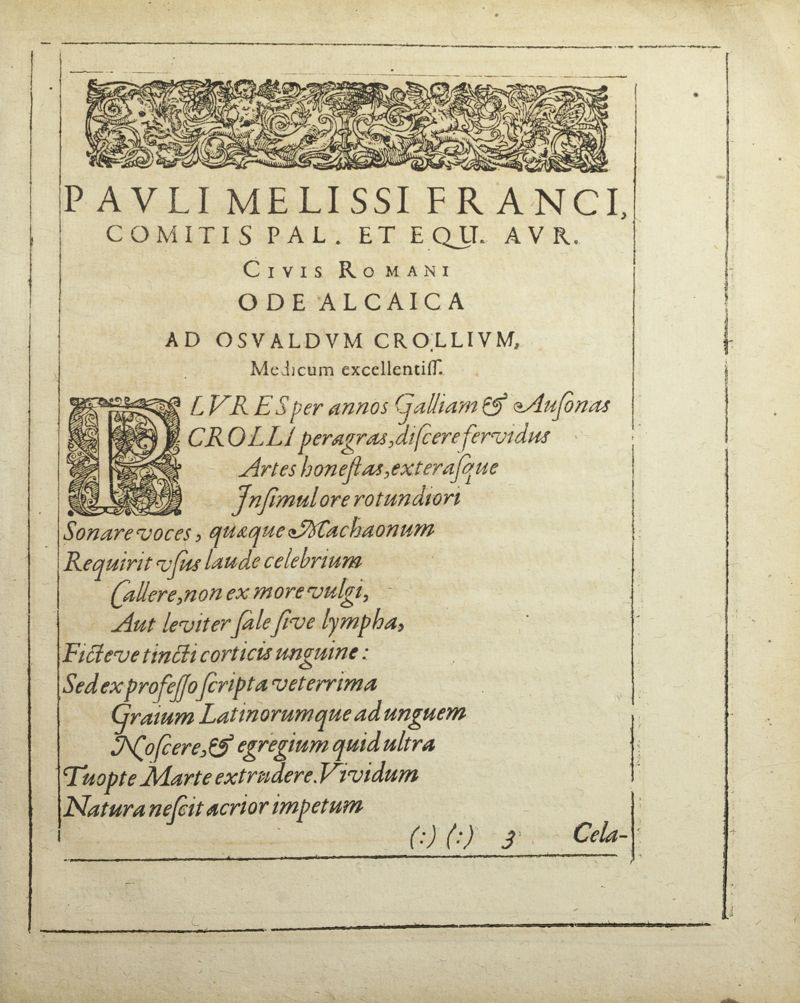 PAVLI MELISSI FRANCI,
COMITIS PAL. ET EQU. AVR.
CIVIS ROMANI
ODE ALCAICA
AD OSVALDVM CROLLIVM,
Medicum excellentiſſ.
PLVRES per annos Galliam & Auſonas
CROLLI peragras, diſcere fervidus
Artes honeſtas, exteraſque
Inſimul ore rotundiori
Sonare voces, quæque Machaonum
Requirit vſus laude celebrium
Callere, non ex more vulgi,
Aut leviter ſale ſive lympha,
Ficteve tincti corticis unguine:
Sed ex profeſſo ſcripta veterrima
Graium Latinorumque ad unguem
Noſcere, & egregium quid ultra
Tuopte Marte extrudere. Vividum
Natura neſcit acrior impetum
(:) (:) 3 Cela-